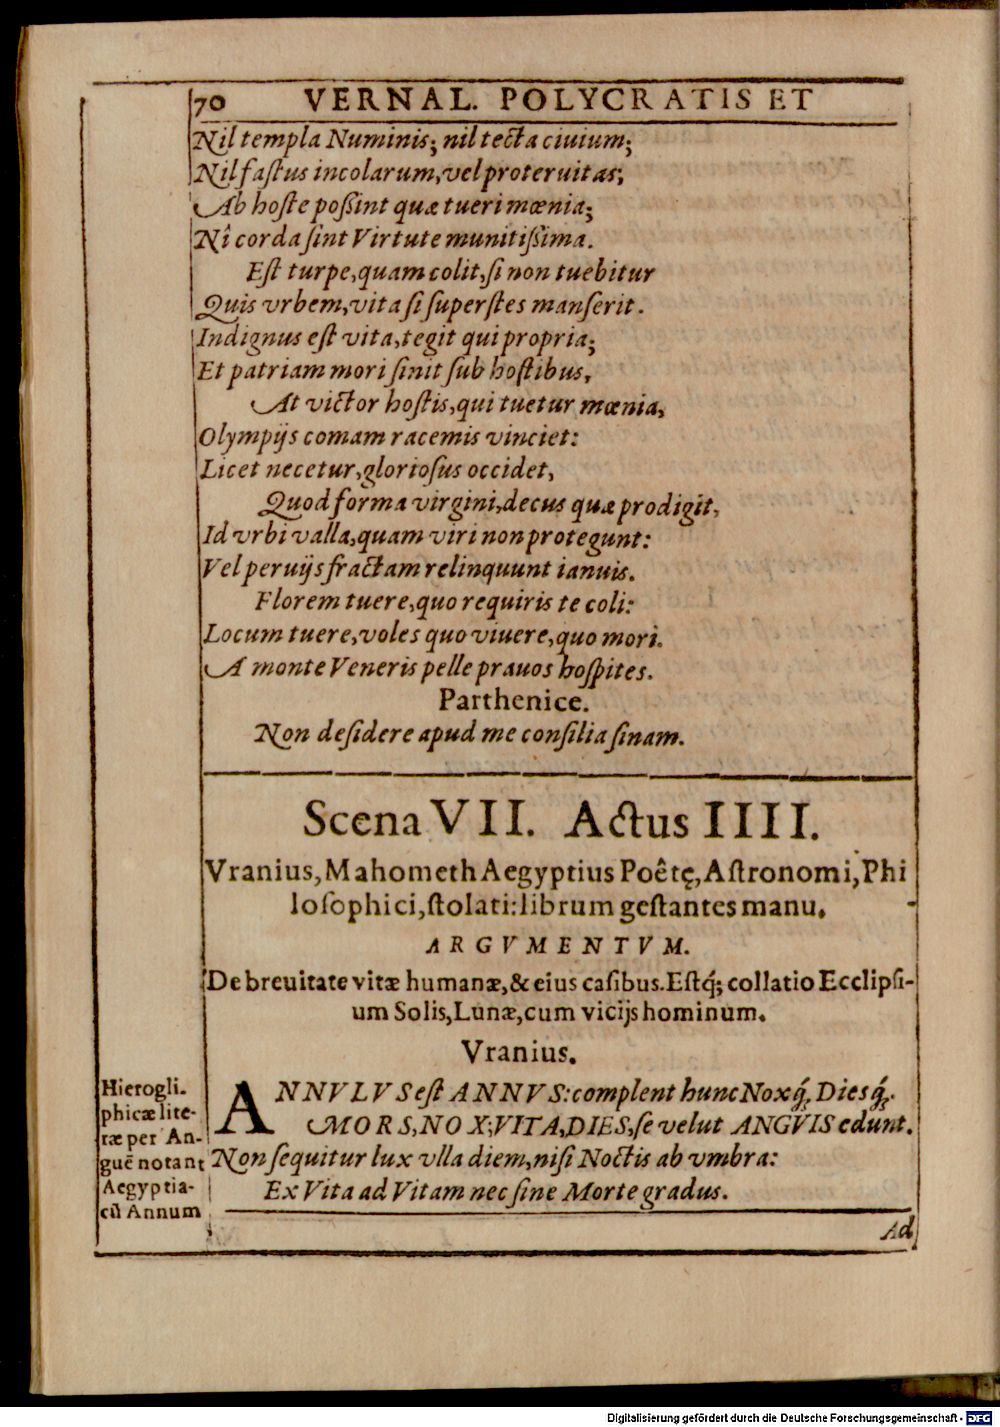 70 VERNAL. POLYCRATIS ET
Nil templa Numinis; nil tecta ciuium;
Nil faſtus incolarum, vel proteruitas;
Ab hoſte poßint quæ tueri mœnia;
Nî corda ſint Virtute munitißima.
Eſt turpe, quam colit, ſi non tuebitur
Quis vrbem, vita ſi ſuperſtes manſerit.
Indignus eſt vita, tegit qui propria;
Et patriam mori ſinit ſub hoſtibus,
At victor hoſtis, qui tuetur mœnia,
Olympijs comam racemis vinciet:
Licet necetur, glorioſus occidet,
Quod forma virgini, decus quæ prodigit,
Id vrbi valla, quam viri non protegunt:
Vel peruijs fractam relinquunt ianuis.
Florem tuere, quo requiris te coli:
Locum tuere, voles quo viuere, quo mori.
A monte Veneris pelle prauos hoſpites.
Parthenice.
Non deſidere apud me conſilia ſinam.
Scena VII. Actus IIII.
Vranius, Mahometh Aegyptius Poêtę, Aſtronomi, Phi-
loſophici, ſtolati: librum geſtantes manu.
ARGVMENTVM.
De breuitate vitæ humanæ, & eius caſibus. Eſtq́; collatio Ecclipſi-
um Solis, Lunæ, cum vicijs hominum.
Vranius.
ANNVLVS eſt ANNVS: complent hunc Noxq́, Diesq́.
MORS, NOX; VITA, DIES, ſe velut ANGVIS edunt.
Non ſequitur lux vlla diem, niſi Noctis ab vmbra:
Ex Vita ad Vitam nec ſine Morte gradus.
Hierogli.
phicæ lite-
ræ per An-
guē notant
Aegyptia-
cū Annum
Ad
Digitalisierung gefördert durch die Deutsche Forschungsgemeinschaft - DFG